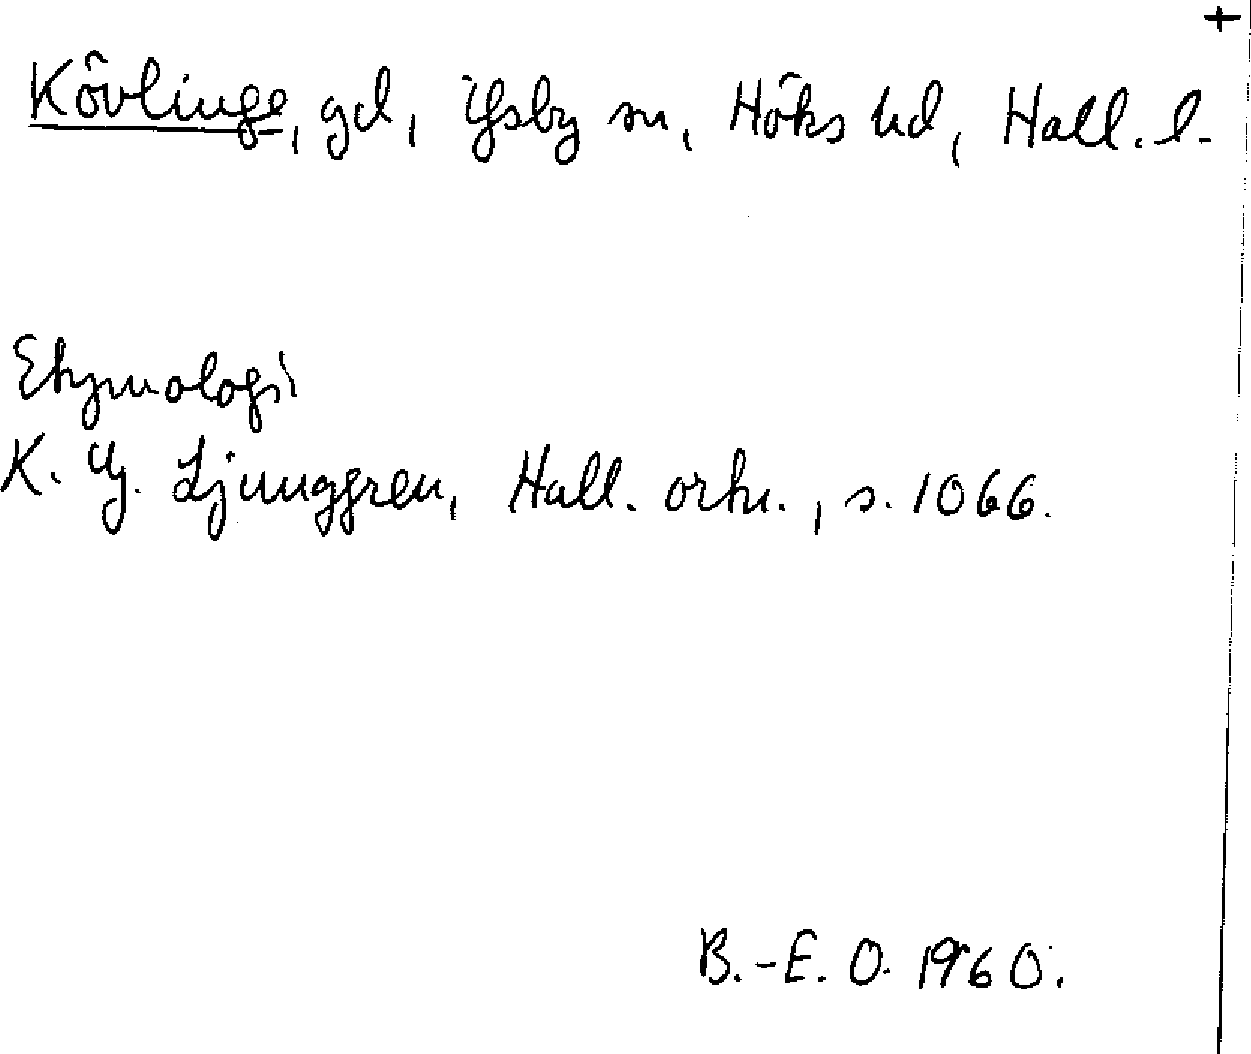 +
Kövlinge, gd, Ysby sn, Höks hd, Hall. l.
Etymologi
K. G. Ljunggren, Hall. ortn., s. 1066.
B.-E. O. 1960.